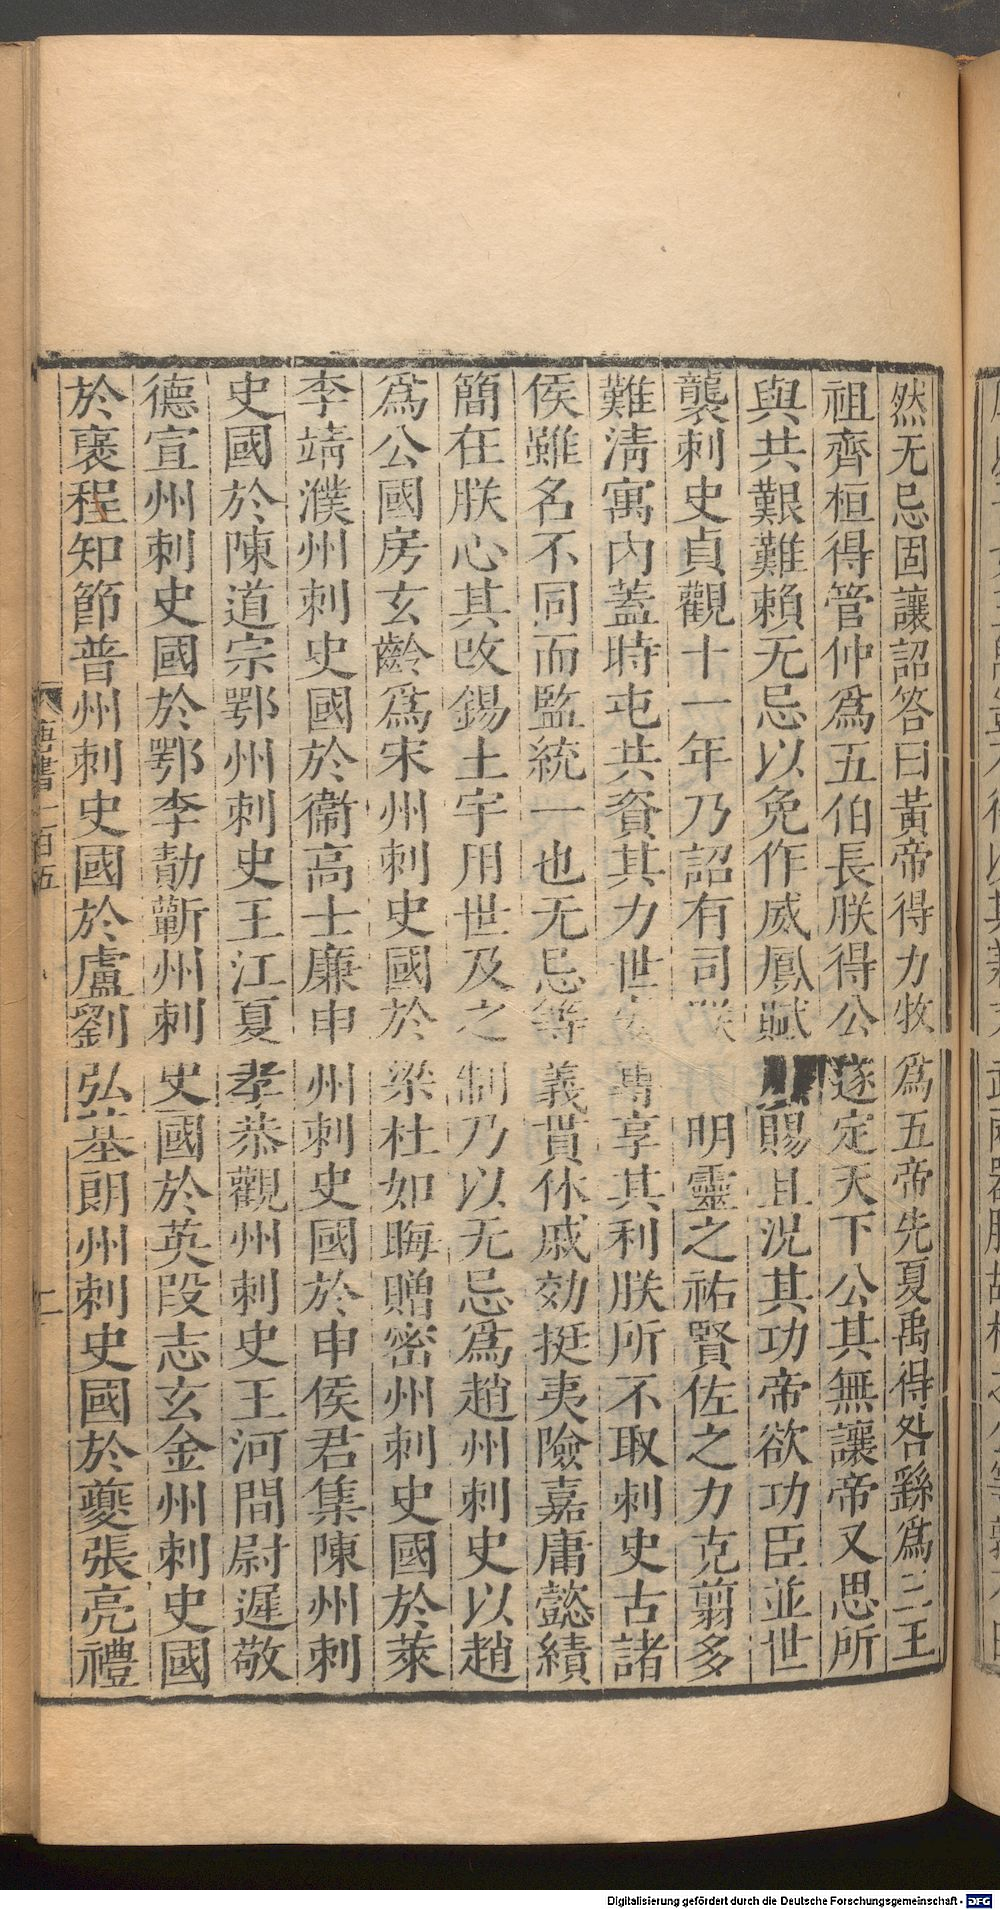 然无忌固讓詔答曰黃帝得力牧爲五帝先夏禹得咎繇爲三王
祖齊桓得管仲爲五伯長朕得公遂定天下公其無讓帝又思所
與共艱難賴无忌以免作威鳳賦賜且況其功帝欲功臣並世
襲刺史貞觀十一年乃詔有司朕明靈之祐賢佐之力克翦多
難淸寓內蓋時屯共資其力世專享其利朕所不取刺史古諸
侯雖名不同而監統一也无忌等義貫休戚効挺夷險嘉庸懿績
簡在朕心其改錫土宇用世及之制乃以无忌爲趙州刺史以趙
爲公國房玄齡爲宋州刺史國於梁杜如晦贈密州刺史國於萊
李靖濮州刺史國於衞高士廉申州刺史國於申侯君集陳州刺
史國於陳道宗鄂州刺史王江夏孝恭觀州刺史王河間尉遲敬
德宣州刺史國於鄂李勣蘄州刺史國於英段志玄金州刺史國
於褒程知節普州刺史國於盧劉弘基朗州刺史國於夔張亮禮
唐書一百五
二
Digitalisierung gefördert durch die Deutsche Forschungsgemeinschaft - DFG